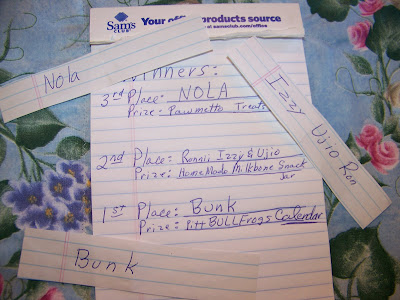 Sam's CLUB
Your office products source
at samsclub.com/office
Winners:
3rd Place: NOLA
Prize: Pawmetto Treats
2nd Place: Ronni Izzy & Ujio
Prize: HomeMade Milkbone Snack
Jar
1ST Place: Bunk
Prize: Pitt BULLFrogs Calendar
Nola
Izzy Ujio Ron
Bunk